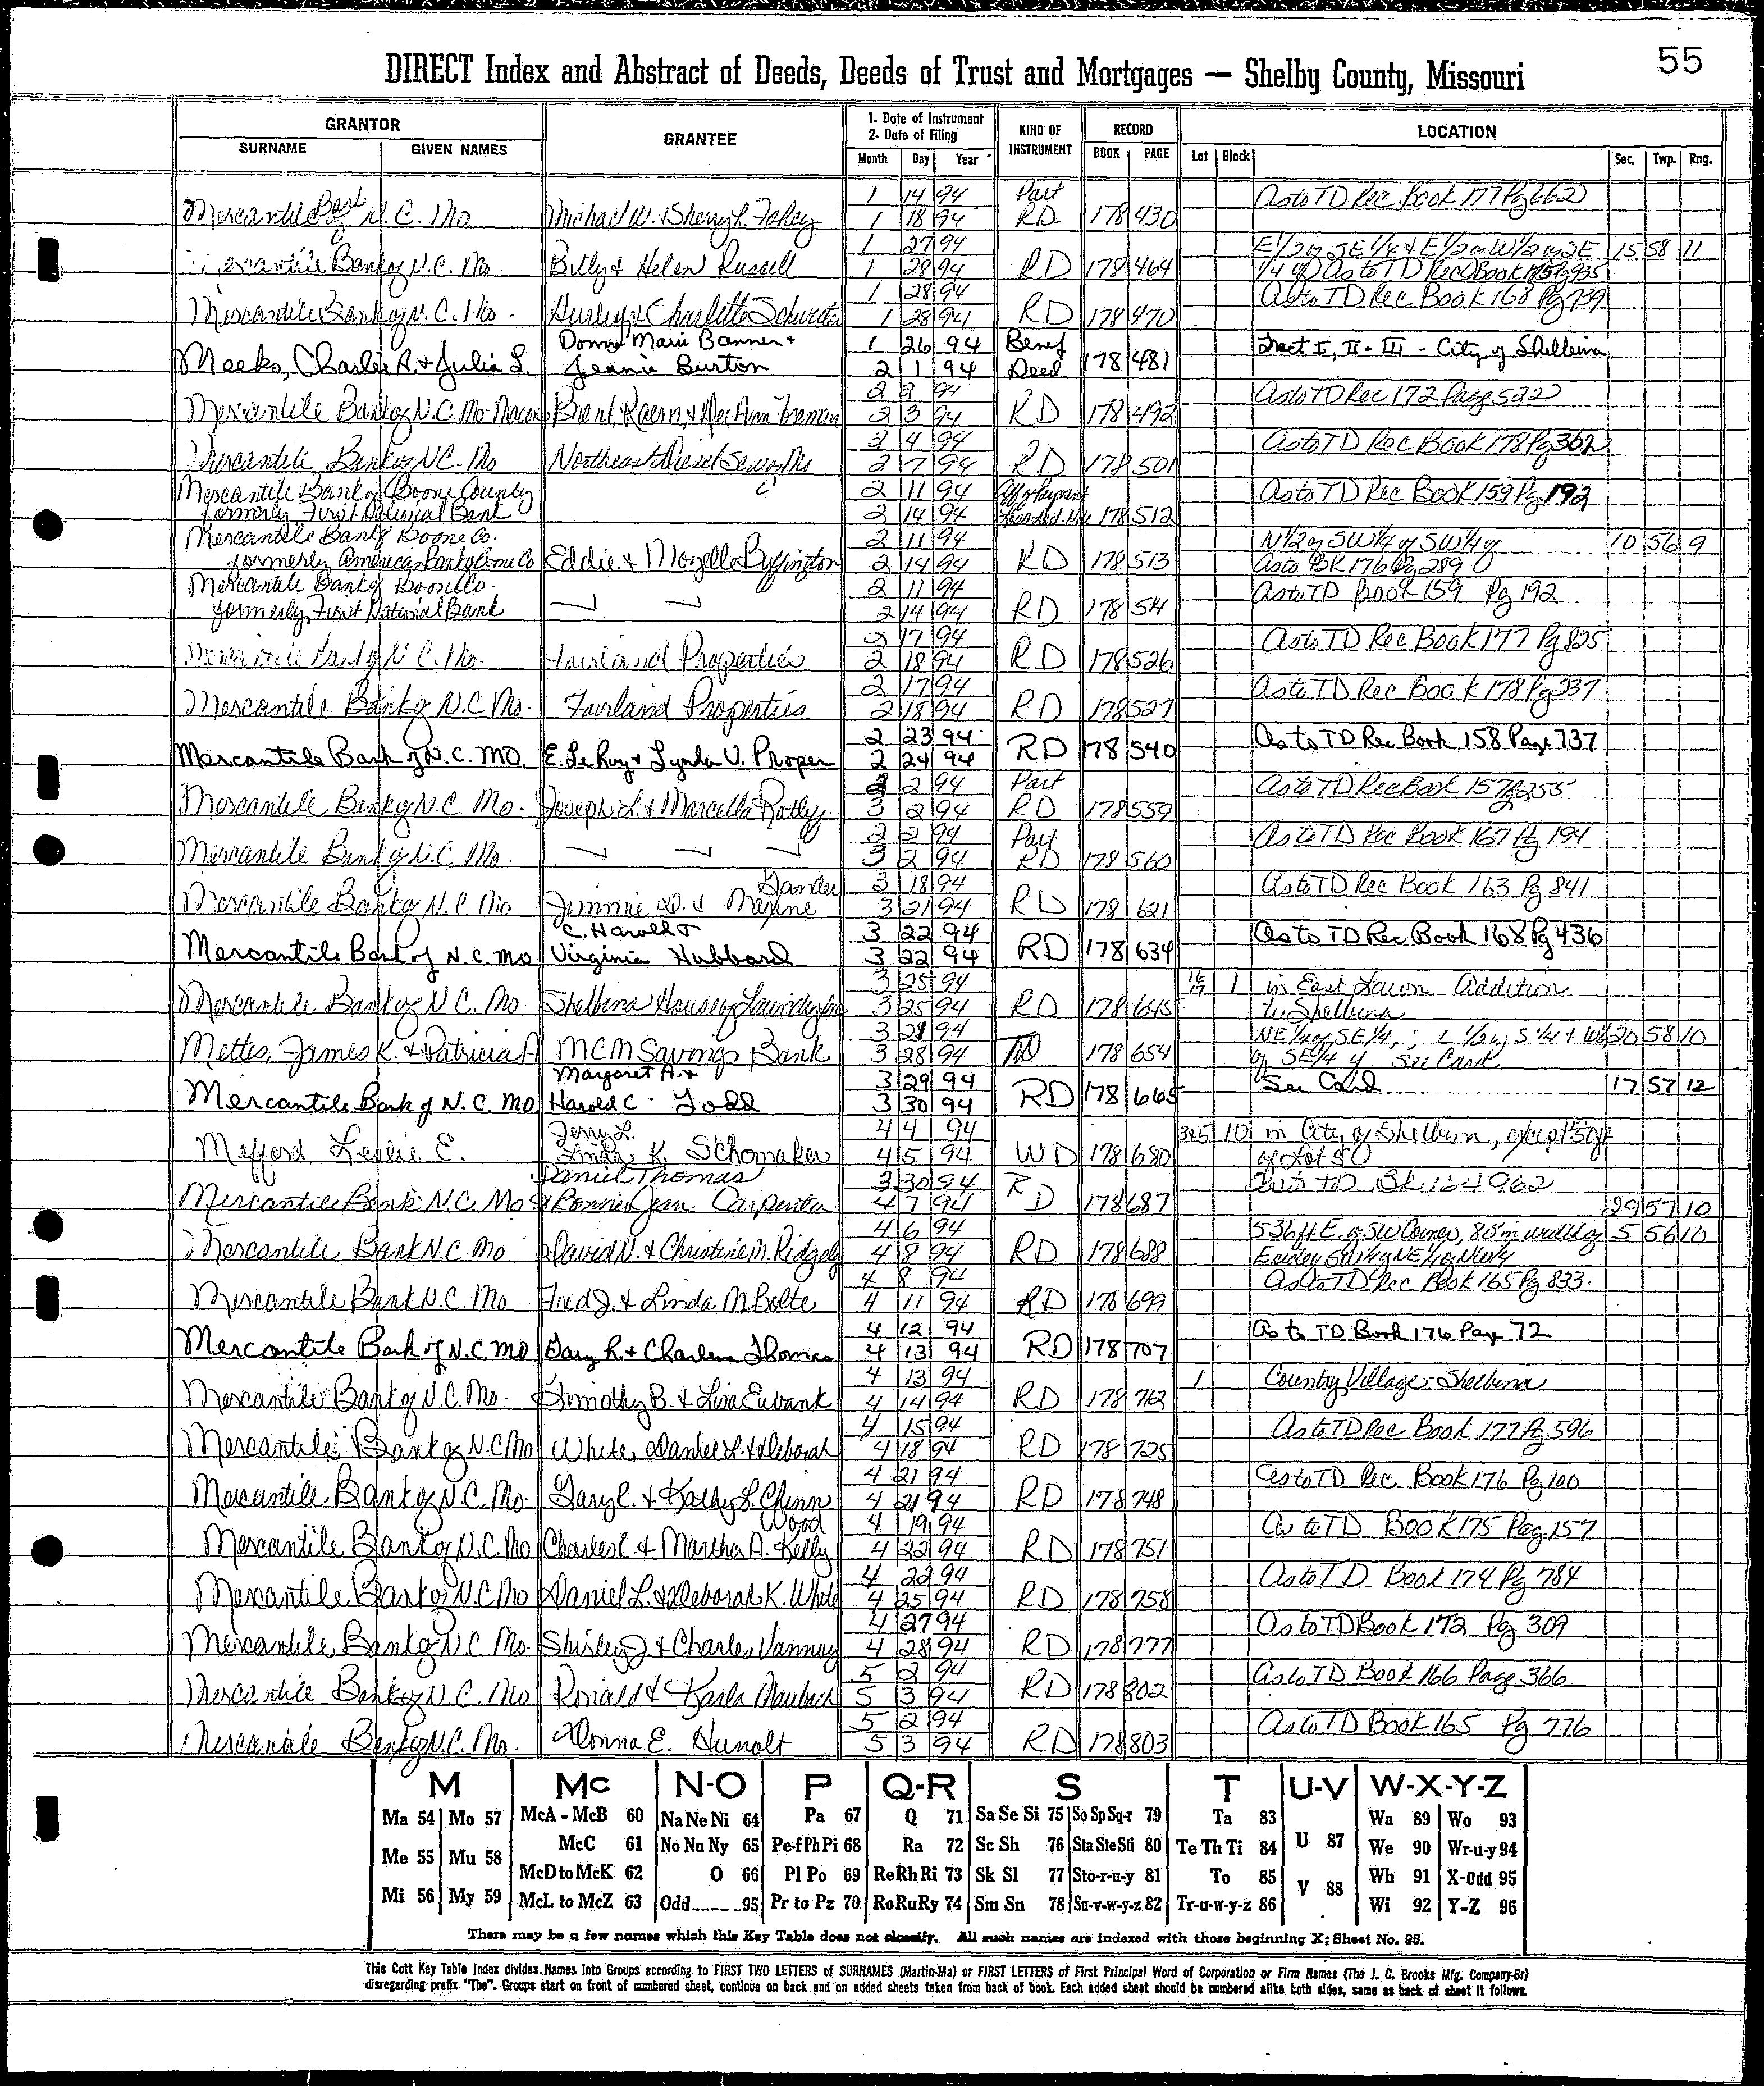 55
DIRECT Index and Abstract of Deeds, Deeds of Trust and Mortgages — Shelby County, Missouri
GRANTOR
SURNAME GIVEN NAMES
GRANTEE
1. Date of Instrument
2. Date of Filing
Month Day Year
KIND OF INSTRUMENT
RECORD
BOOK PAGE
LOCATION
Lot Block Sec. Twp. Rng.
Mercantile Bank of N.C. Mo Michael W. & Sherry L. 1 14 94 Part As to TD Rec Book 177 Pg 662
1 18 94 RD 178 430
Mercantile Bank of N.C. Mo. Billy & Helen Russell 1 27 94 E 1/2 of SE 1/4 & E 1/2 of W 1/2 of SE 15 58 11
1 28 94 RD 178 464 1/4 of As to TD Rec Book 175 Pg 935
Mercantile Bank of N.C. Mo. & Charlotte 1 28 94 As to TD Rec. Book 168 Pg 739
1 28 94 RD 178 470
Meeks, Charlie A. & Julia L. Donna Marie Banner & 1 26 94 Benef Tract I, II & III - City of Shelbina
Jeanie Burton 2 1 94 Deed 178 481
Mercantile Bank of N.C. Mo-Macon Brent & Dee Ann 2 2 94 As to TD Rec 172 Page 522
2 3 94 RD 178 492
Mercantile Bank of N.C. Mo Northeast Diesel Serv. 2 4 94 As to TD Rec Book 178 Pg 362
2 7 94 RD 178 501
Mercantile Bank of Boone County 2 11 94 Aff of Payment As to TD Rec Book 159 Pg 192
formerly First National Bank 2 14 94 178 512
Mercantile Bank of Boone Co. 2 11 94 N 1/2 of SW 1/4 of SW 1/4 of 10 56 9
formerly American Bank of Boone Co Eddie & Mozella Buffington 2 14 94 RD 178 513 As to BK 176 Pg 289
Mercantile Bank of Boone Co. 2 11 94 As to TD Book 159 Pg 192
formerly First National Bank 2 14 94 RD 178 514
Mercantile Bank of N.C. Mo. Fairland Properties 2 17 94 As to TD Rec Book 177 Pg 825
2 18 94 RD 178 526
Mercantile Bank of N.C. Mo. Fairland Properties 2 17 94 As to TD Rec Book 178 Pg 237
2 18 94 RD 178 527
Mercantile Bank of N.C. MO. E. LeRoy & Lynda V. Proper 2 23 94 As to TD Rec Book 158 Page 737
2 24 94 RD 178 540
Mercantile Bank of N.C. Mo. Joseph L. & Marcella 2 2 94 Part As to TD Rec Book 157 Pg 255
3 2 94 RD 178 559
Mercantile Bank of N.C. Mo. 2 2 94 Part As to TD Rec Book 167 Pg 194
3 2 94 RD 178 560
Mercantile Bank of N.C. Mo Jimmie D. & Maxine 3 18 94 As to TD Rec Book 163 Pg 841
3 21 94 RD 178 621
Mercantile Bank of N.C. Mo C. Harold & 3 22 94 As to TD Rec Book 168 Pg 436
Virginia Hubbard 3 22 94 RD 178 634
Mercantile Bank of N.C. Mo Shelbina House of 3 25 94 16 17 1 in East Lawn Addition
3 25 94 RD 178 645 to Shelbina
Mettes, James K. & Patricia A MCM Savings Bank 3 28 94 NE 1/4 of SE 1/4, 20 58 10
3 28 94 TD 178 654 of SE 1/4 of See Card
Mercantile Bank of N.C. Mo Margaret A. & 3 29 94 See Card 17 57 12
Harold C. Todd 3 30 94 RD 178 665
Mefford Leslie E. Jerry L. 4 4 94 10 in City of Shelbina, except
Linda K. Schomaker 4 5 94 WD 178 680 of Lot
Mercantile Bank N.C. Mo Daniel Thomas 3 30 94 As to TD Bk. 164 962
& Bonnie Jean Carpenter 4 7 94 RD 178 687 29 57 10
Mercantile Bank N.C. Mo David N. & Christine M. Ridgely 4 6 94 536 ft E. of SW Corner, 85' in width of 5 56 10
4 8 94 RD 178 688 SW 1/4 of NE 1/4 of NW 1/4
Mercantile Bank N.C. Mo Fred J. & Linda M. Bolte 4 8 94 As to TD Rec Book 165 Pg 833.
4 11 94 RD 178 699
Mercantile Bank of N.C. Mo. Gary R. & Charlene Thomas 4 12 94 As to TD Book 176 Page 72
4 13 94 RD 178 707
Mercantile Bank of N.C. Mo. Timothy B. & Lisa Eubank 4 13 94 1 Country Village - Shelbina
4 14 94 RD 178 712
Mercantile Bank of N.C. Mo White, Daniel L. & Deborah 4 15 94 As to TD Rec Book 177 Pg 596
4 18 94 RD 178 725
Mercantile Bank of N.C. Mo. Gary R. & Kathy L. Chinn 4 21 94 As to TD Rec. Book 176 Pg 100
4 21 94 RD 178 748
Mercantile Bank of N.C. Mo Charles L. & Martha A. Kelly Wood 4 19 94 As to TD Book 175 Pag 157
4 22 94 RD 178 751
Mercantile Bank of N.C. Mo Daniel L. & Deborah K. White 4 22 94 As to TD Book 174 Pg 784
4 25 94 RD 178 758
Mercantile Bank of N.C. Mo. Shirley J. & Charles Vannoy 4 27 94 As to TD Book 172 Pg 309
4 28 94 RD 178 777
Mercantile Bank of N.C. Mo Ronald & Karla 5 2 94 As to TD Book 166 Page 366
5 3 94 RD 178 802
Mercantile Bank of N.C. Mo. Donna E. Hunolt 5 2 94 As to TD Book 165 Pg 776
5 3 94 RD 178 803
M Mc N-O P Q-R S T U-V W-X-Y-Z
Ma 54 Mo 57 McA - McB 60 Na Ne Ni 64 Pa 67 Q 71 Sa Se Si 75 So Sp Sq-r 79 Ta 83 U 87 Wa 89 Wo 93
Me 55 Mu 58 McC 61 No Nu Ny 65 Pe-f Ph Pi 68 Ra 72 Sc Sh 76 Sta Ste Sti 80 Te Th Ti 84 We 90 Wr-u-y 94
McD to McK 62 O 66 Pl Po 69 Re Rh Ri 73 Sk Sl 77 Sto-r-u-y 81 To 85 V 88 Wh 91 X-Odd 95
Mi 56 My 59 McL to McZ 63 Odd-----95 Pr to Pz 70 Ro Ru Ry 74 Sm Sn 78 Su-v-w-y-z 82 Tr-u-w-y-z 86 Wi 92 Y-Z 96
There may be a few names which this Key Table does not classify. All such names are indexed with those beginning X; Sheet No. 95.
This Cott Key Table Index divides Names Into Groups according to FIRST TWO LETTERS of SURNAMES (Martin-Ma) or FIRST LETTERS of First Principal Word of Corporation or Firm Names (The J. C. Brooks Mfg. Company-Br)
disregarding prefix "The". Groups start on front of numbered sheet, continue on back and on added sheets taken from back of book. Each added sheet should be numbered alike both sides, same as back of sheet it follows.